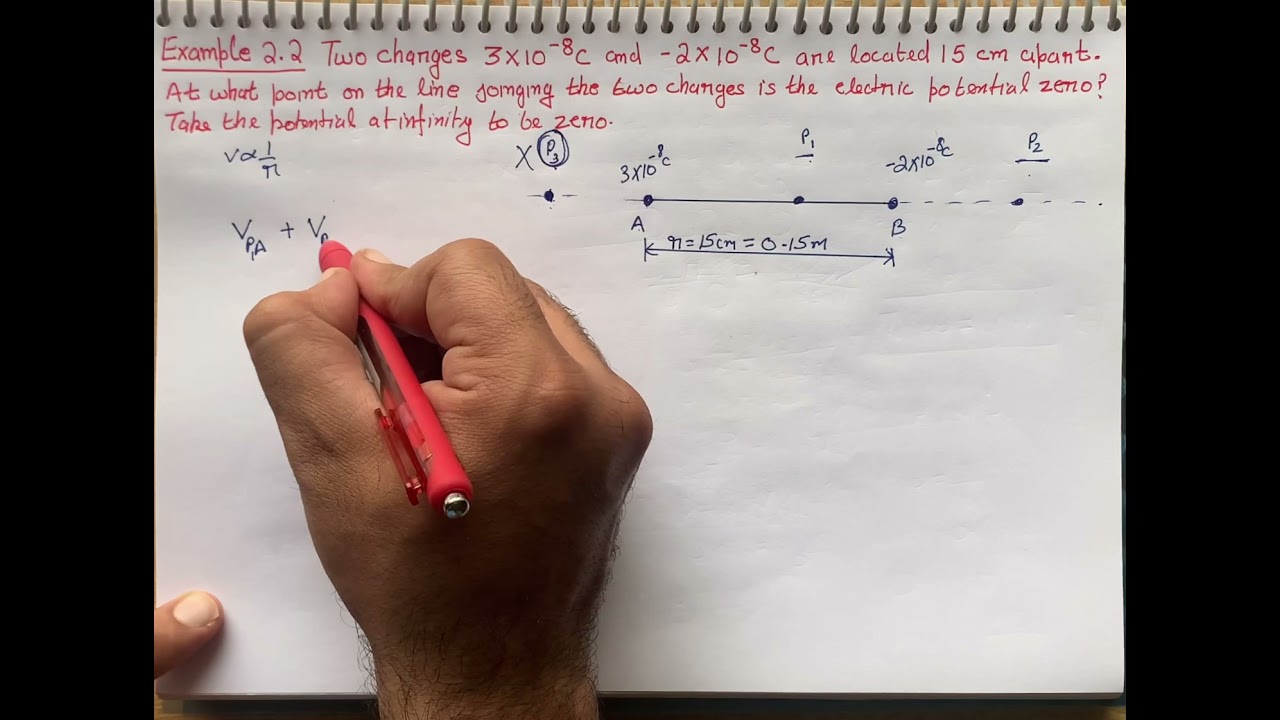 Example 2.2 Two charges 3×10⁻⁸C and -2×10⁻⁸C are located 15 cm apart.
At what point on the line joinging the two charges is the electric potential zero?
Take the potential at infinity to be zero.
V∝1/r
X P₃
3×10⁻⁸C
P₁
-2×10⁻⁸C
P₂
A
B
r=15cm=0.15m
V_P₁A + V_P